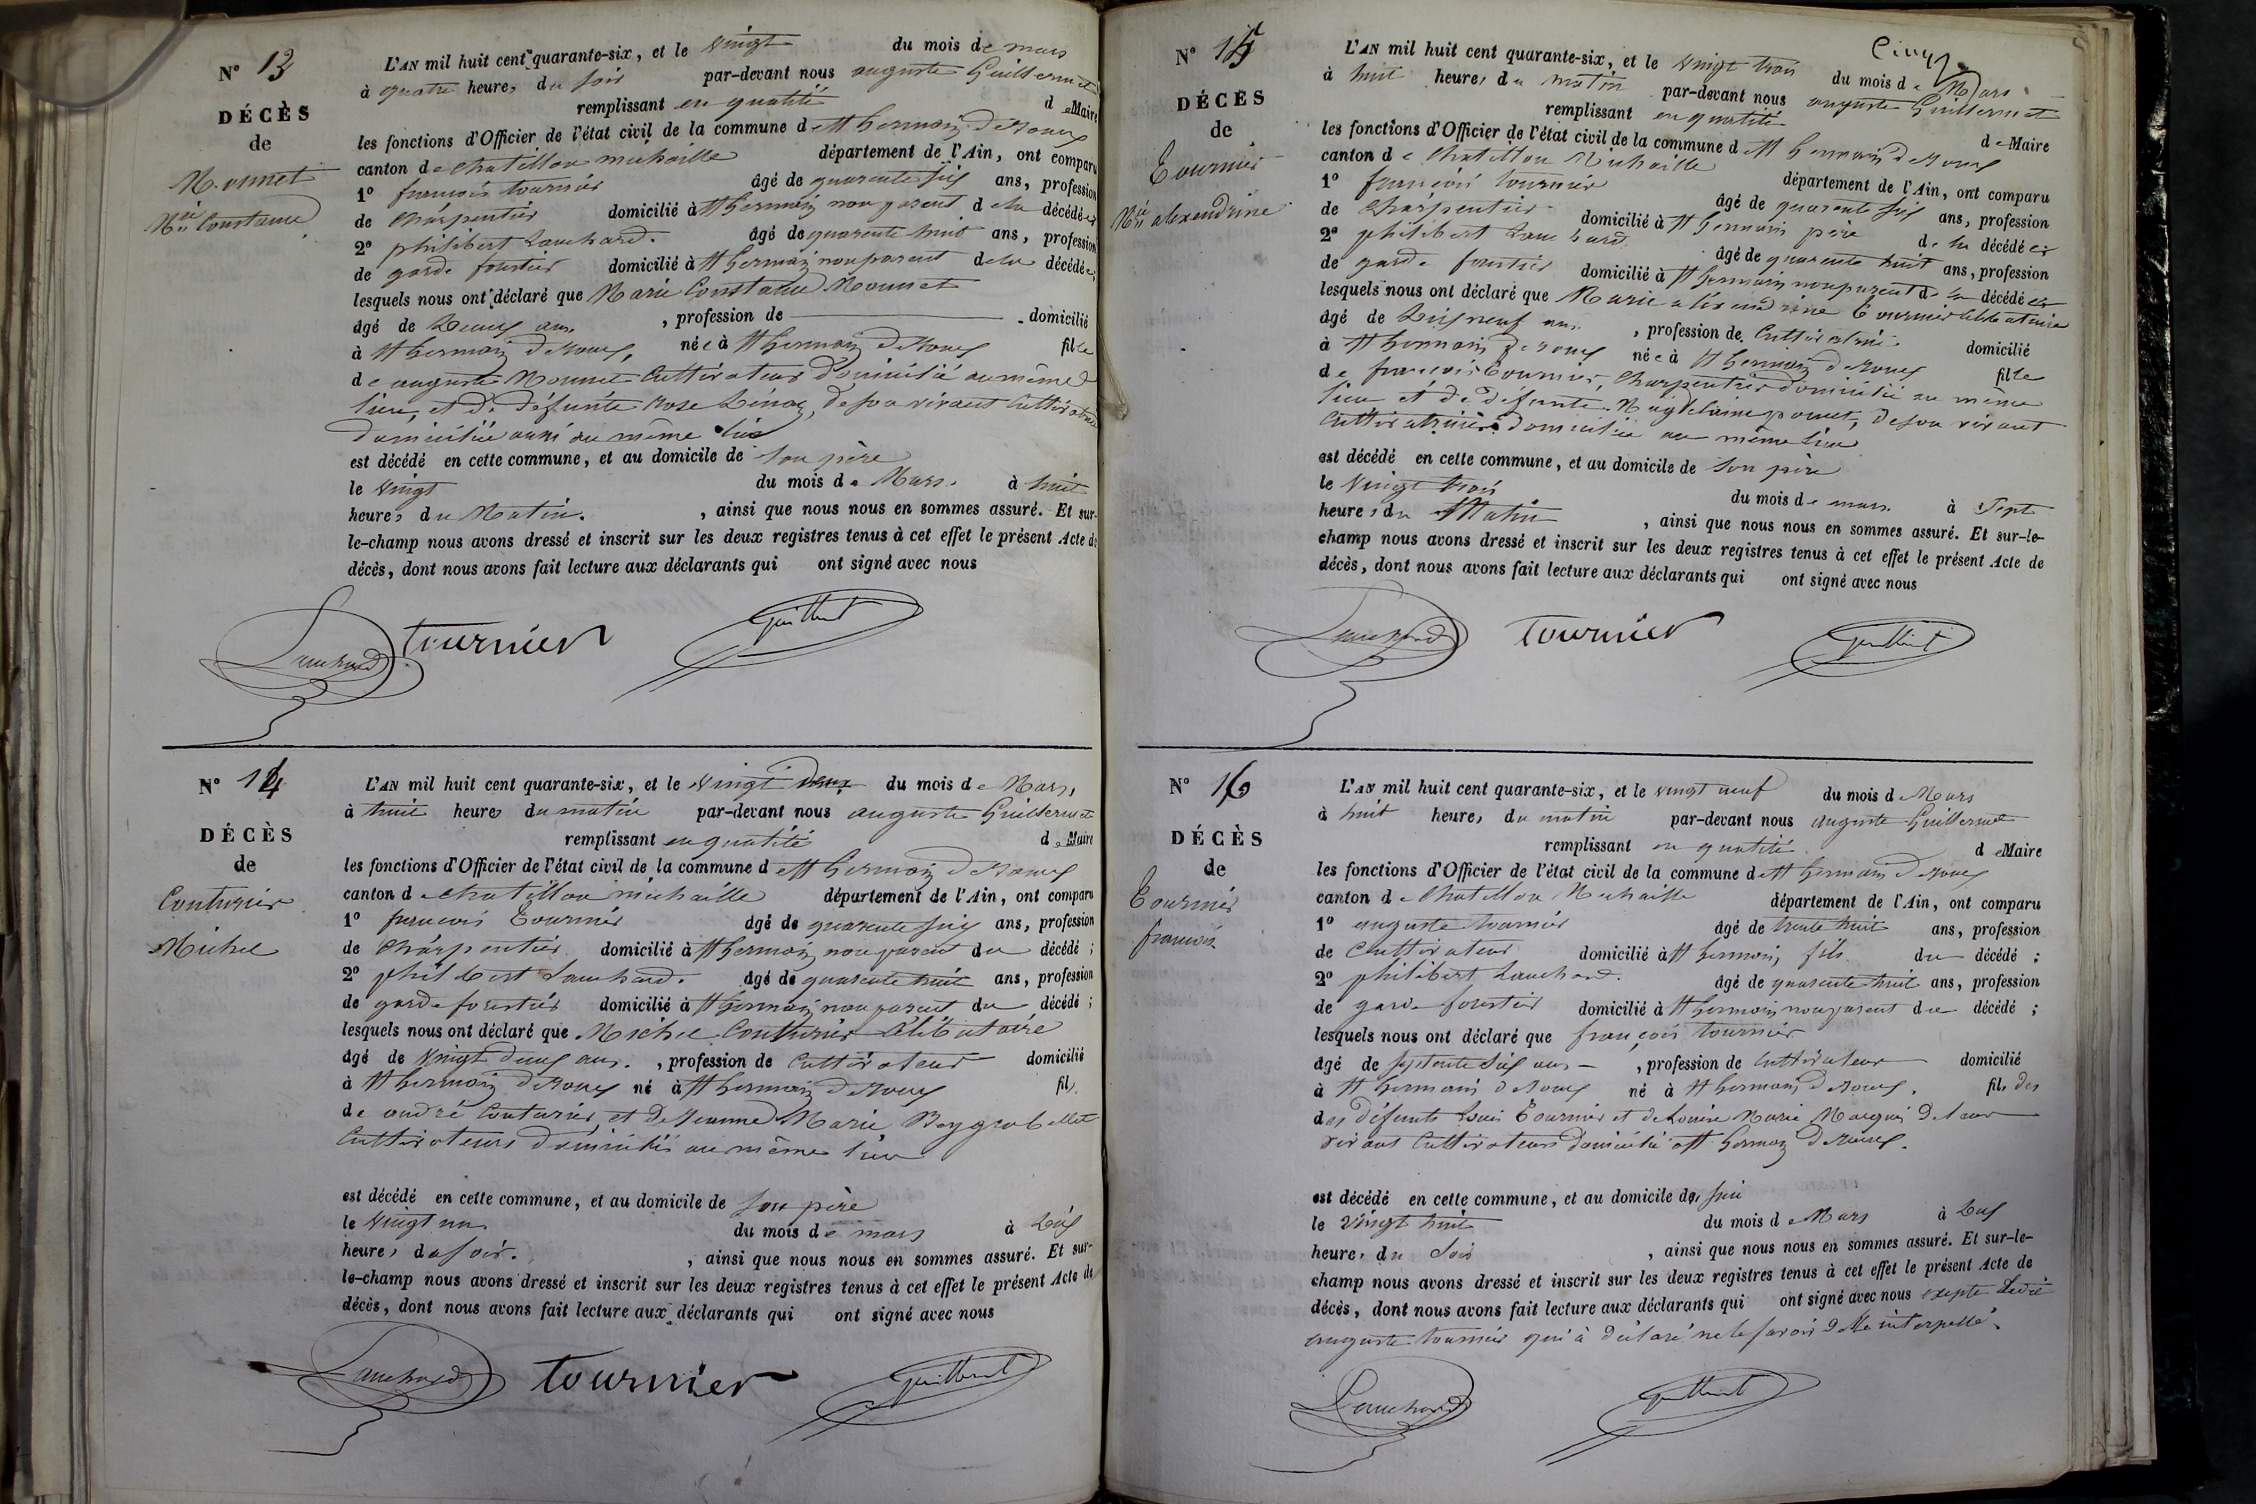 N° 13
DÉCÈS
de
Monnet
Mie Constance
L'AN mil huit cent quarante-six, et le vingt du mois de mars
à quatre heures du soir par-devant nous auguste Guillermet
remplissant en qualité de Maire
les fonctions d'Officier de l'état civil de la commune de St Germain de Joux
canton de Chatillon michaille département de l'Ain, ont comparu
1° françois tournier âgé de quarente six ans, profession
de Charpentier domicilié à St Germain non parent de la décédée
2° philibert Lauchard. âgé de quarente huit ans, profession
de garde forestier domicilié à St Germain non parent de la décédée;
lesquels nous ont déclaré que Marie Constance Monnet
âgé de Deux ans , profession de domicilié
à St Germain de Joux, née à St Germain de Joux fille
de auguste Monnet Cultivateur domicilié au même
lieu, et de défunte Rose , de son vivant Cultivatrice
domiciliée aussi au même lieu
est décédé en cette commune, et au domicile de son père
le vingt du mois de Mars. à huit
heures du Matin. , ainsi que nous nous en sommes assuré. Et sur-
le-champ nous avons dressé et inscrit sur les deux registres tenus à cet effet le présent Acte de
décès, dont nous avons fait lecture aux déclarants qui ont signé avec nous
Lauchard tournier Guillermet
N° 14
DÉCÈS
de
Couturier
Michel
L'AN mil huit cent quarante-six, et le vingt deux du mois de Mars,
à huit heures du matin par-devant nous auguste Guillermet
remplissant en qualité de Maire
les fonctions d'Officier de l'état civil de la commune de St Germain de Joux
canton de Chatillon michaille département de l'Ain, ont comparu
1° francois Tournier âgé de quarente six ans, profession
de Charpentier domicilié à St Germain non parent du décédé ;
2° philibert Lauchard. âgé de quarente huit ans, profession
de garde forestier domicilié à St Germain non parent du décédé ;
lesquels nous ont déclaré que Michel Couturier Célibataire
âgé de vingt deux ans. , profession de Cultivateur domicilié
à St Germain de Joux né à St Germain de Joux fils
de andré Couturier et de Jeanne Marie Beygrobellet
Cultivateurs domiciliés au même lieu
est décédé en cette commune, et au domicile de son père
le vingt un du mois de mars à Dix
heures du soir. , ainsi que nous nous en sommes assuré. Et sur-
le-champ nous avons dressé et inscrit sur les deux registres tenus à cet effet le présent Acte de
décès, dont nous avons fait lecture aux déclarants qui ont signé avec nous
Lauchard tournier Guillermet
N° 15
DÉCÈS
de
Tournier
Mie alexendrine
Cinq
L'AN mil huit cent quarante-six, et le vingt trois du mois de Mars
à huit heures du matin par-devant nous auguste Guillermet
remplissant en qualité de Maire
les fonctions d'Officier de l'état civil de la commune de St Germain de Joux
canton de Chatillon Michaille département de l'Ain, ont comparu
1° françois tournier âgé de quarente six ans, profession
de Charpentier domicilié à St Germain père de la décédée
2° philibert Lauchard âgé de quarente huit ans, profession
de garde forestier domicilié à St Germain non parent de la décédée
lesquels nous ont déclaré que Marie alexendrine Tournier Célibataire
âgé de Dix neuf ans. , profession de Cultivatrice domicilié
à St Germain de Joux née à St Germain de Joux fille
de françois Tournier, Charpentier domicilié au même
lieu et de défunte Magdelaine ponnet, de son vivant
Cultivatrice domiciliée au même lieu
est décédé en cette commune, et au domicile de son père
le vingt trois du mois de mars à Sept
heures du Matin , ainsi que nous nous en sommes assuré. Et sur-le-
champ nous avons dressé et inscrit sur les deux registres tenus à cet effet le présent Acte de
décès, dont nous avons fait lecture aux déclarants qui ont signé avec nous
Lauchard tournier Guillermet
N° 16
DÉCÈS
de
Tournier
francois
L'AN mil huit cent quarante-six, et le vingt neuf du mois de Mars
à huit heures du matin par-devant nous auguste Guillermet
remplissant en qualité de Maire
les fonctions d'Officier de l'état civil de la commune de St Germain de Joux
canton de Chatillon Michaille département de l'Ain, ont comparu
1° auguste tournier âgé de trente huit ans, profession
de Cultivateur domicilié à St Germain, fils du décédé ;
2° philibert Lauchard. âgé de quarente huit ans, profession
de garde forestier domicilié à St Germain non parent du décédé ;
lesquels nous ont déclaré que françois tournier
âgé de septente six ans , profession de Cultivateur domicilié
à St Germain de Joux né à St Germain de Joux, fils des
des défunts Louis Tournier et de Louise Marie Marquis de leur
vivant Cultivateurs domiciliés à St Germain de Joux.
est décédé en cette commune, et au domicile de, sui
le vingt huit du mois de Mars à Dix
heures du Soir , ainsi que nous nous en sommes assuré. Et sur-le-
champ nous avons dressé et inscrit sur les deux registres tenus à cet effet le présent Acte de
décès, dont nous avons fait lecture aux déclarants qui ont signé avec nous excepté ledit
auguste tournier qui à déclaré ne le savoir de ce interpellé.
Lauchard Guillermet